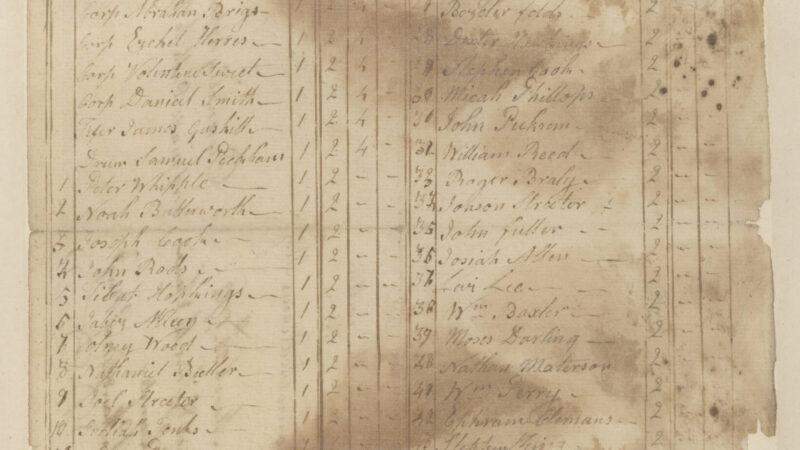 Corp Abraham Brigs 1 2 4
Corp Ezehel Herres 1 2 4
Corp Volentine Sweet 1 2 4
Corp Daniel Smith 1 2 4
Fifer James Gaskill 1 2 4
Drum Samuel Peckham 1 2 4
1 Peter Whipple 1 2
2 Noah Butterworth 1 2
3 Joseph Cook 1 2
4 John Rods 1 2
5 Hopkings 1 2
6 Jabez 1 2
7 Wood 1 2
8 Nathaniel Buller 1 2
9 Joel Streeter 1 2
10 Jonks 1 2
2
Dexter 2
Stephen Cook 2
30 Micah Phillops 2
31 John Pecksom 2
32 William Reed 2
33 Roger Braly 2
34 Jonson Streeter 2
35 John fuller 2
36 Josiah Allen 2
37 Levi Lee 2
38 Wm Baxter 2
39 Moses Darling 2
40 Nathan Materson 2
41 Wm Perry 2
42 Ephraim Clemans 2
Stephen